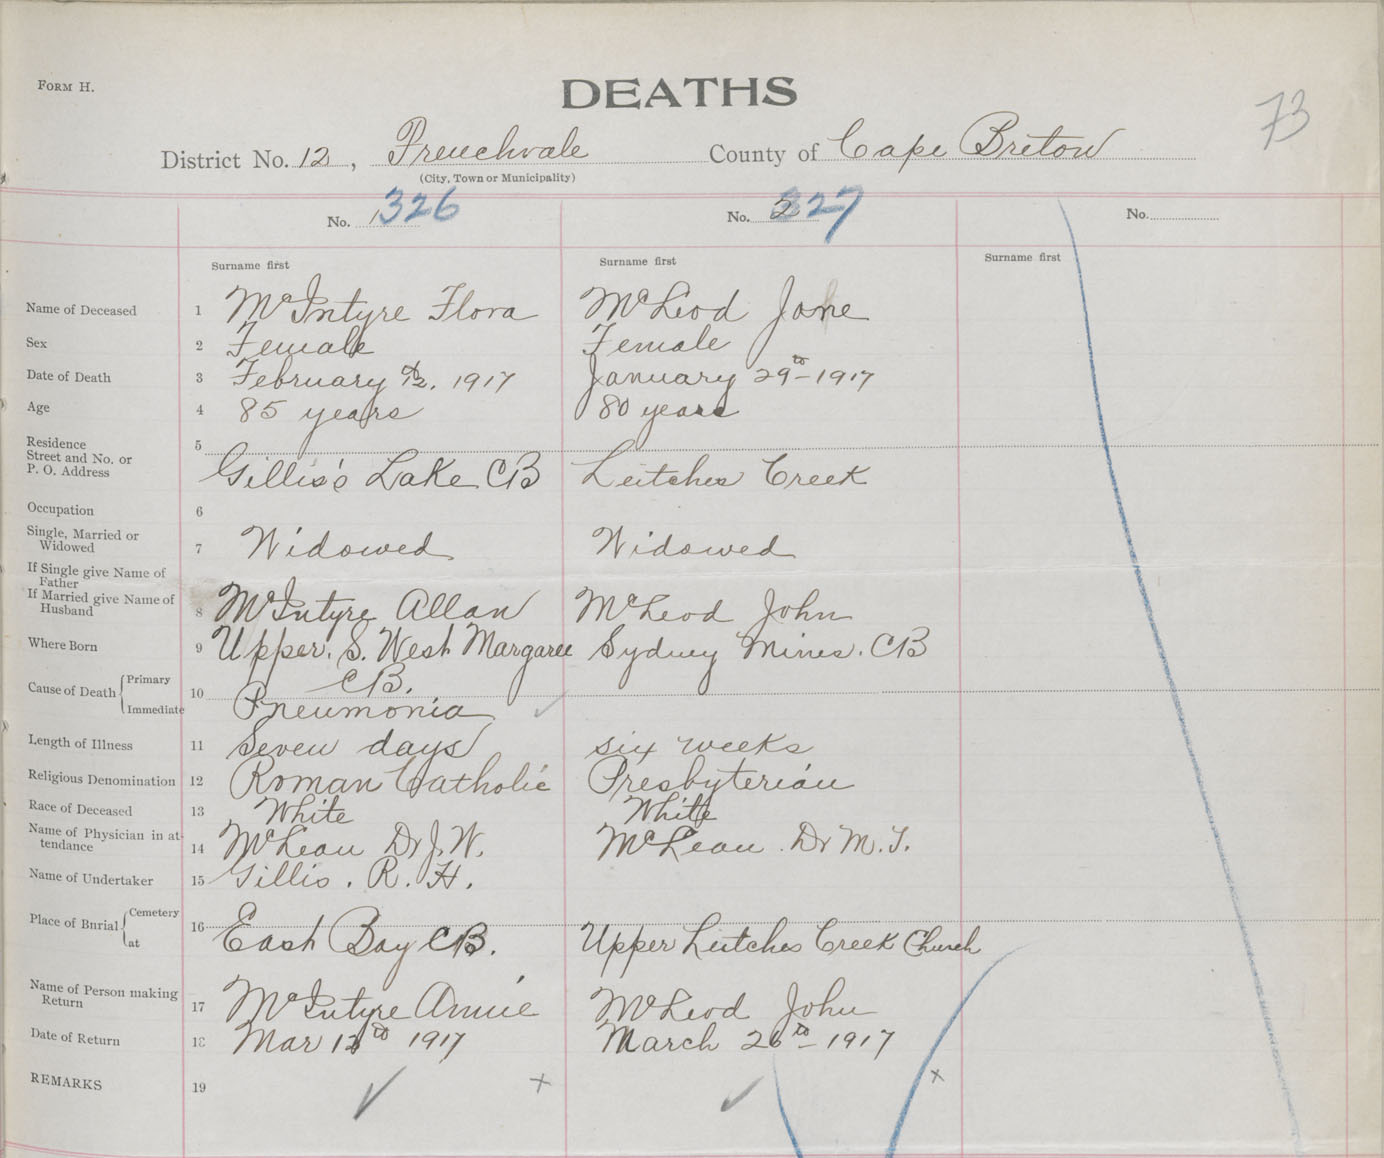 FORM H.
DEATHS
73
District No. 12, Frenchvale County of Cape Breton
(City, Town or Municipality)
No. 1 326 No. 2 327 No.
Surname first Surname first Surname first
Name of Deceased 1 McIntyre Flora McLeod Jane
Sex 2 Female Female
Date of Death 3 February 1917 January 29th - 1917
Age 4 85 years 80 years
Residence
Street and No. or
P. O. Address 5 Gillis's Lake CB Leitches Creek
Occupation 6
Single, Married or
Widowed 7 Widowed Widowed
If Single give Name of
Father
If Married give Name of
Husband 8 McIntyre Allan McLeod John
Where Born 9 Upper. S. West Margaree Sydney Mines. CB
CB.
Cause of Death Primary
Immediate 10 Pneumonia
Length of Illness 11 Seven days six weeks
Religious Denomination 12 Roman Catholic Presbyterian
Race of Deceased 13 White White
Name of Physician in at-
tendance 14 McLean Dr J. W. McLean. Dr M. T.
Name of Undertaker 15 Gillis. R. H.
Place of Burial Cemetery
at 16 East Bay CB. Upper Leitches Creek Church
Name of Person making
Return 17 McIntyre Annie McLeod John
Date of Return 18 Mar 12th 1917 March 26th - 1917
REMARKS 19